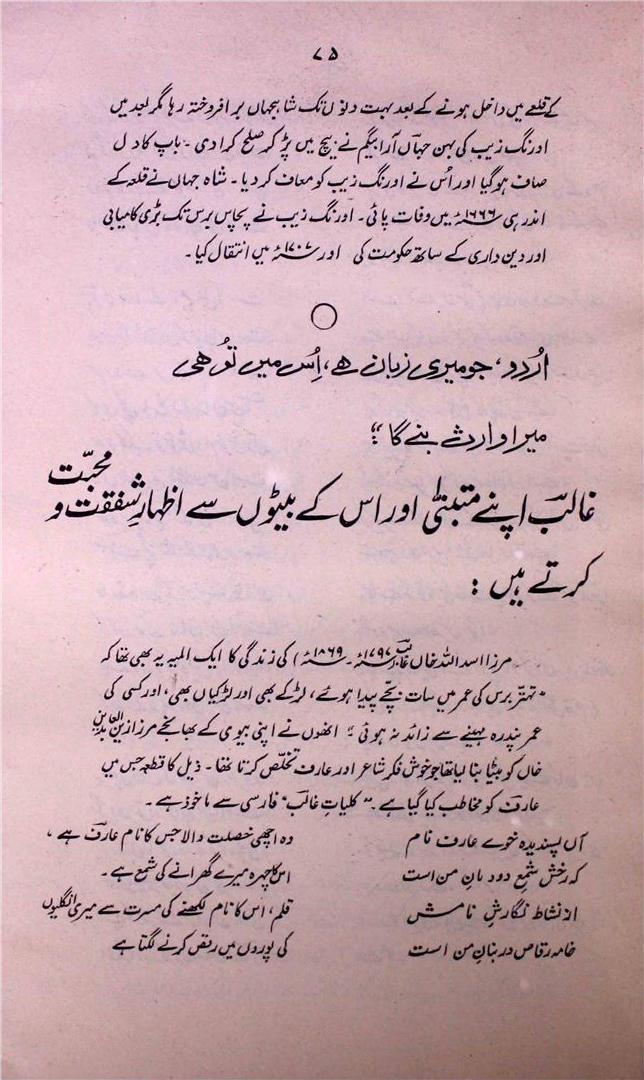 ۷۵
کے قلعے میں داخل ہونے کے بعد بہت دنوں تک شاہجہاں برافروختہ رہا مگر بعد میں
اورنگ زیب کی بہن جہاں آرا بیگم نے بیچ میں پڑ کر صلح کرا دی۔ باپ کا دل
صاف ہوگیا اور اُس نے اورنگ زیب کو معاف کر دیا۔ شاہ جہاں نے قلعہ کے
اندر ہی ۱۶۶۶ء میں وفات پائی۔ اورنگ زیب نے پچاس برس تک بڑی کامیابی
اور دین داری کے ساتھ حکومت کی اور ۱۷۰۷ء میں انتقال کیا۔
اُردو، جو میری زبان ہے، اِس میں تُو ہی
میرا وارث بنے گا“:
غالبؔ اپنے متبنّٰی اور اس کے بیٹوں سے اظہارِ شفقت و محبّت
کرتے ہیں:
مرزا اسد اللہ خاں غالبؔ (۱۷۹۷ء۔ ۱۸۶۹ء) کی زندگی کا ایک المیہ یہ بھی تھا کہ
”تہتر برس کی عمر میں سات بچّے پیدا ہوئے، لڑکے بھی اور لڑکیاں بھی، اور کسی کی
عمر پندرہ مہینے سے زائد نہ ہوئی“ انھوں نے اپنی بیوی کے بھانجے مرزا زین العابدین
خاں کو بیٹا بنا لیا تھا جو خوش فکر شاعر اور عارف تخلّص کرتا تھا۔ ذیل کا قطعہ جس میں
عارفؔ کو مخاطب کیا گیا ہے۔ ”کلیاتِ غالبؔ“ فارسی سے ماخوذ ہے۔
آں پسندیدہ خوے عارف نام وہ اچھی خصلت والا جس کا نام عارفؔ ہے،
کہ رخش شمعِ دودمانِ من است اس کا چہرہ میرے گھرانے کی شمع ہے۔
از نشاطِ نگارشِ نامش قلم، اس کا نام لکھنے کی مسرت سے میری انگلیوں
خامہ رقاص در بنانِ من است کی پوروں میں رقص کرنے لگتا ہے